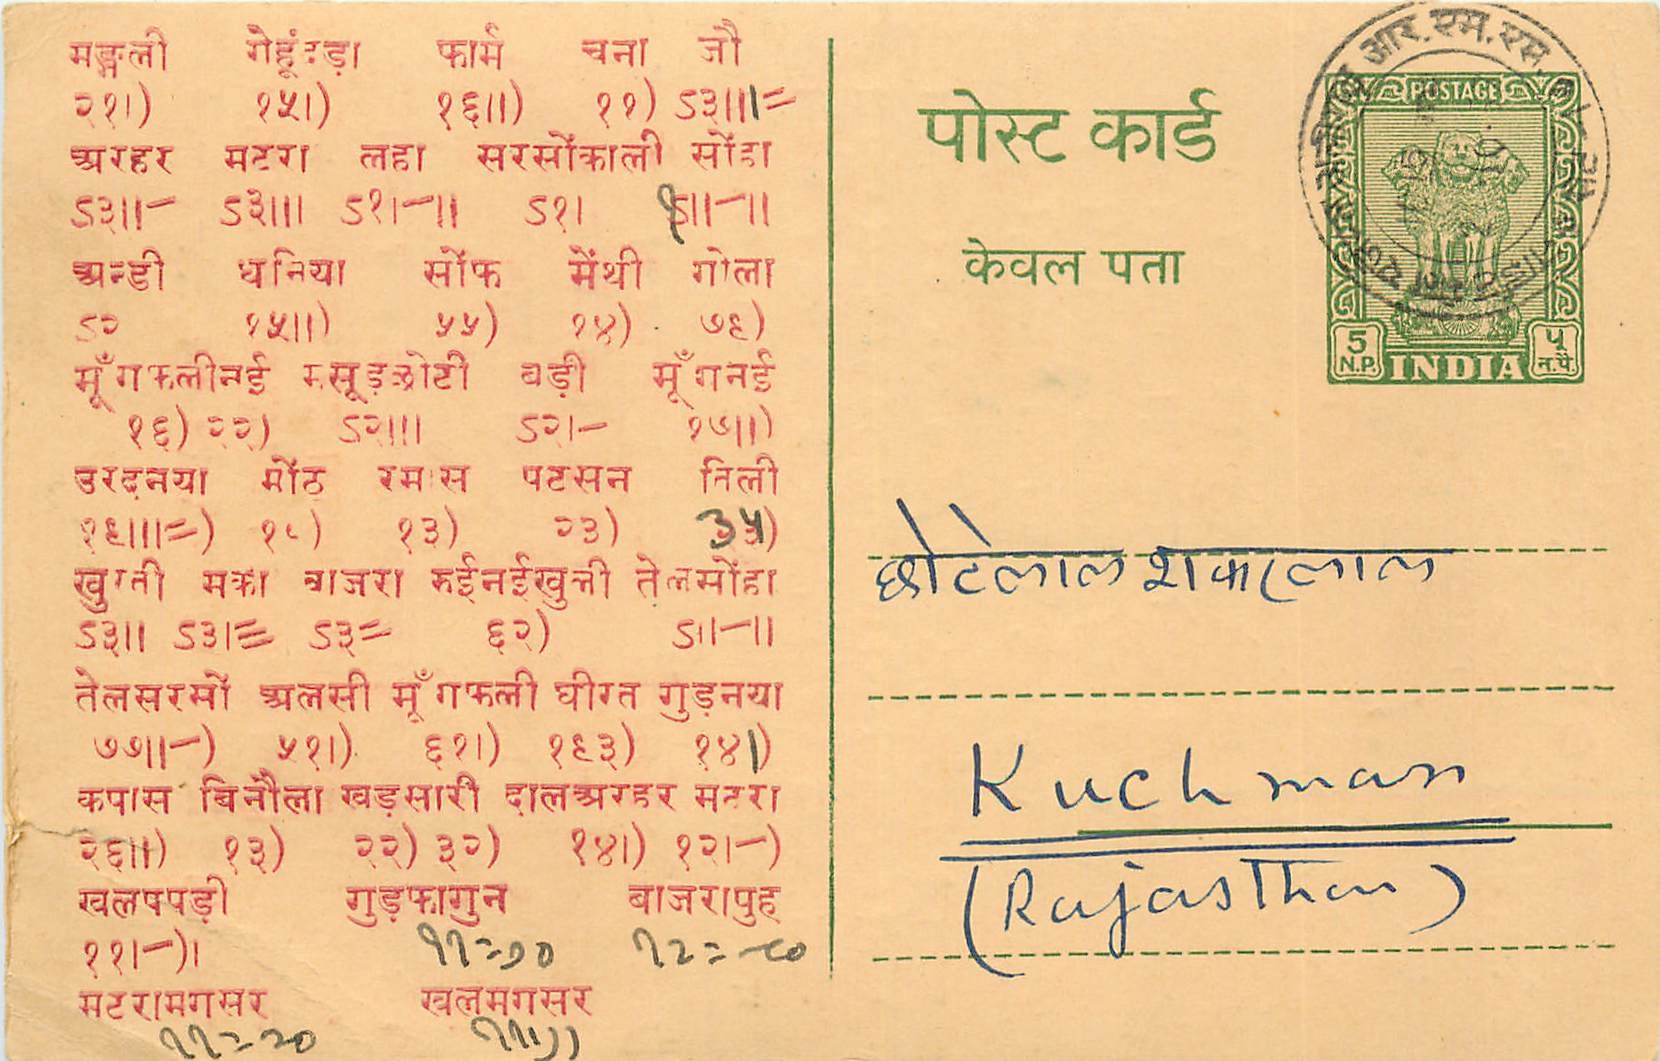 मङ्गली गेहूंदड़ा फार्म चना जौ
२१।) १५।) १६॥) ११) ऽ३॥।=
अरहर मटरा लहा सरसोंकाली सोंहा
ऽ३॥- ऽ३॥। ऽ१।-॥ ऽ१। ऽ॥-॥
अन्डी धनिया सोंफ मेंथी गोला
ऽ२ १५॥) ५५) १४) ७९)
मूँगफलीनई मसूड़छोटी बड़ी मूँगनई
१६) २२) ऽ२॥। ऽ२।- १७॥)
उरदनया मोंठ रमास पटसन तिली
१९॥।=) १८) १३) २३) ३५)
खुरती मका बाजरा रुईनईखुली तेलसोंहा
ऽ३॥ ऽ३।≡ ऽ३= ६२) ऽ॥-॥
तेलसरसों अलसी मूँगफली घीरत गुड़नया
७७॥-) ५१।) ६१।) १९३) १४।)
कपास बिनौला खड़सारी दालअरहर मटरा
२६॥) १३) २२) ३२) १४।) १२।-)
खलपपड़ी गुड़फागुन बाजरापुह
११।-)। ११=७० १२=८०
मटरामगसर खलमगसर
११=२०
पोस्ट कार्ड
केवल पता
POSTAGE
5 N.P. INDIA ५ न.पै.
आर.एम.एस.
छोटेलाल शकरलाल
Kuchman
(Rajasthan)